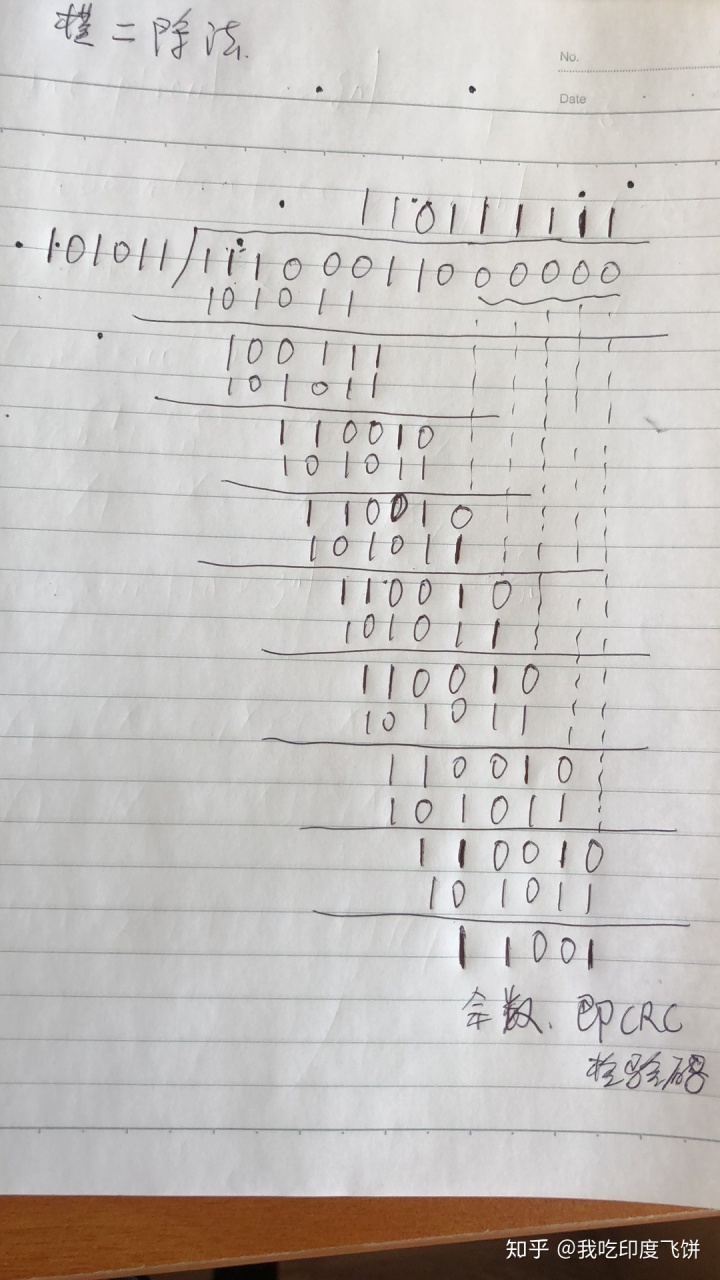 模二除法.
No.
Date
110111111
101011/11100011000000
101011
100111
101011
110010
101011
110010
101011
110010
101011
110010
101011
110010
101011
110010
101011
11001
余数、即CRC
检验码
知乎 @我吃印度飞饼